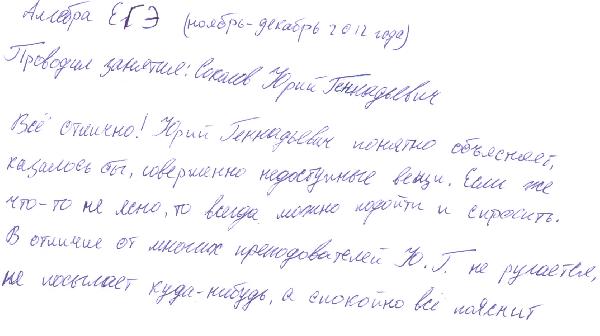 Алгебра ЕГЭ (ноябрь-декабрь 2012 года)
Проводил занятия: Соколов Юрий Геннадьевич
Всё отлично! Юрий Геннадьевич понятно объясняет,
казалось бы, совершенно недоступные вещи. Если же
что-то не ясно, то всегда можно подойти и спросить.
В отличие от многих преподователей Ю.Г. не ругается,
не посылает куда-нибудь, а спокойно всё пояснит